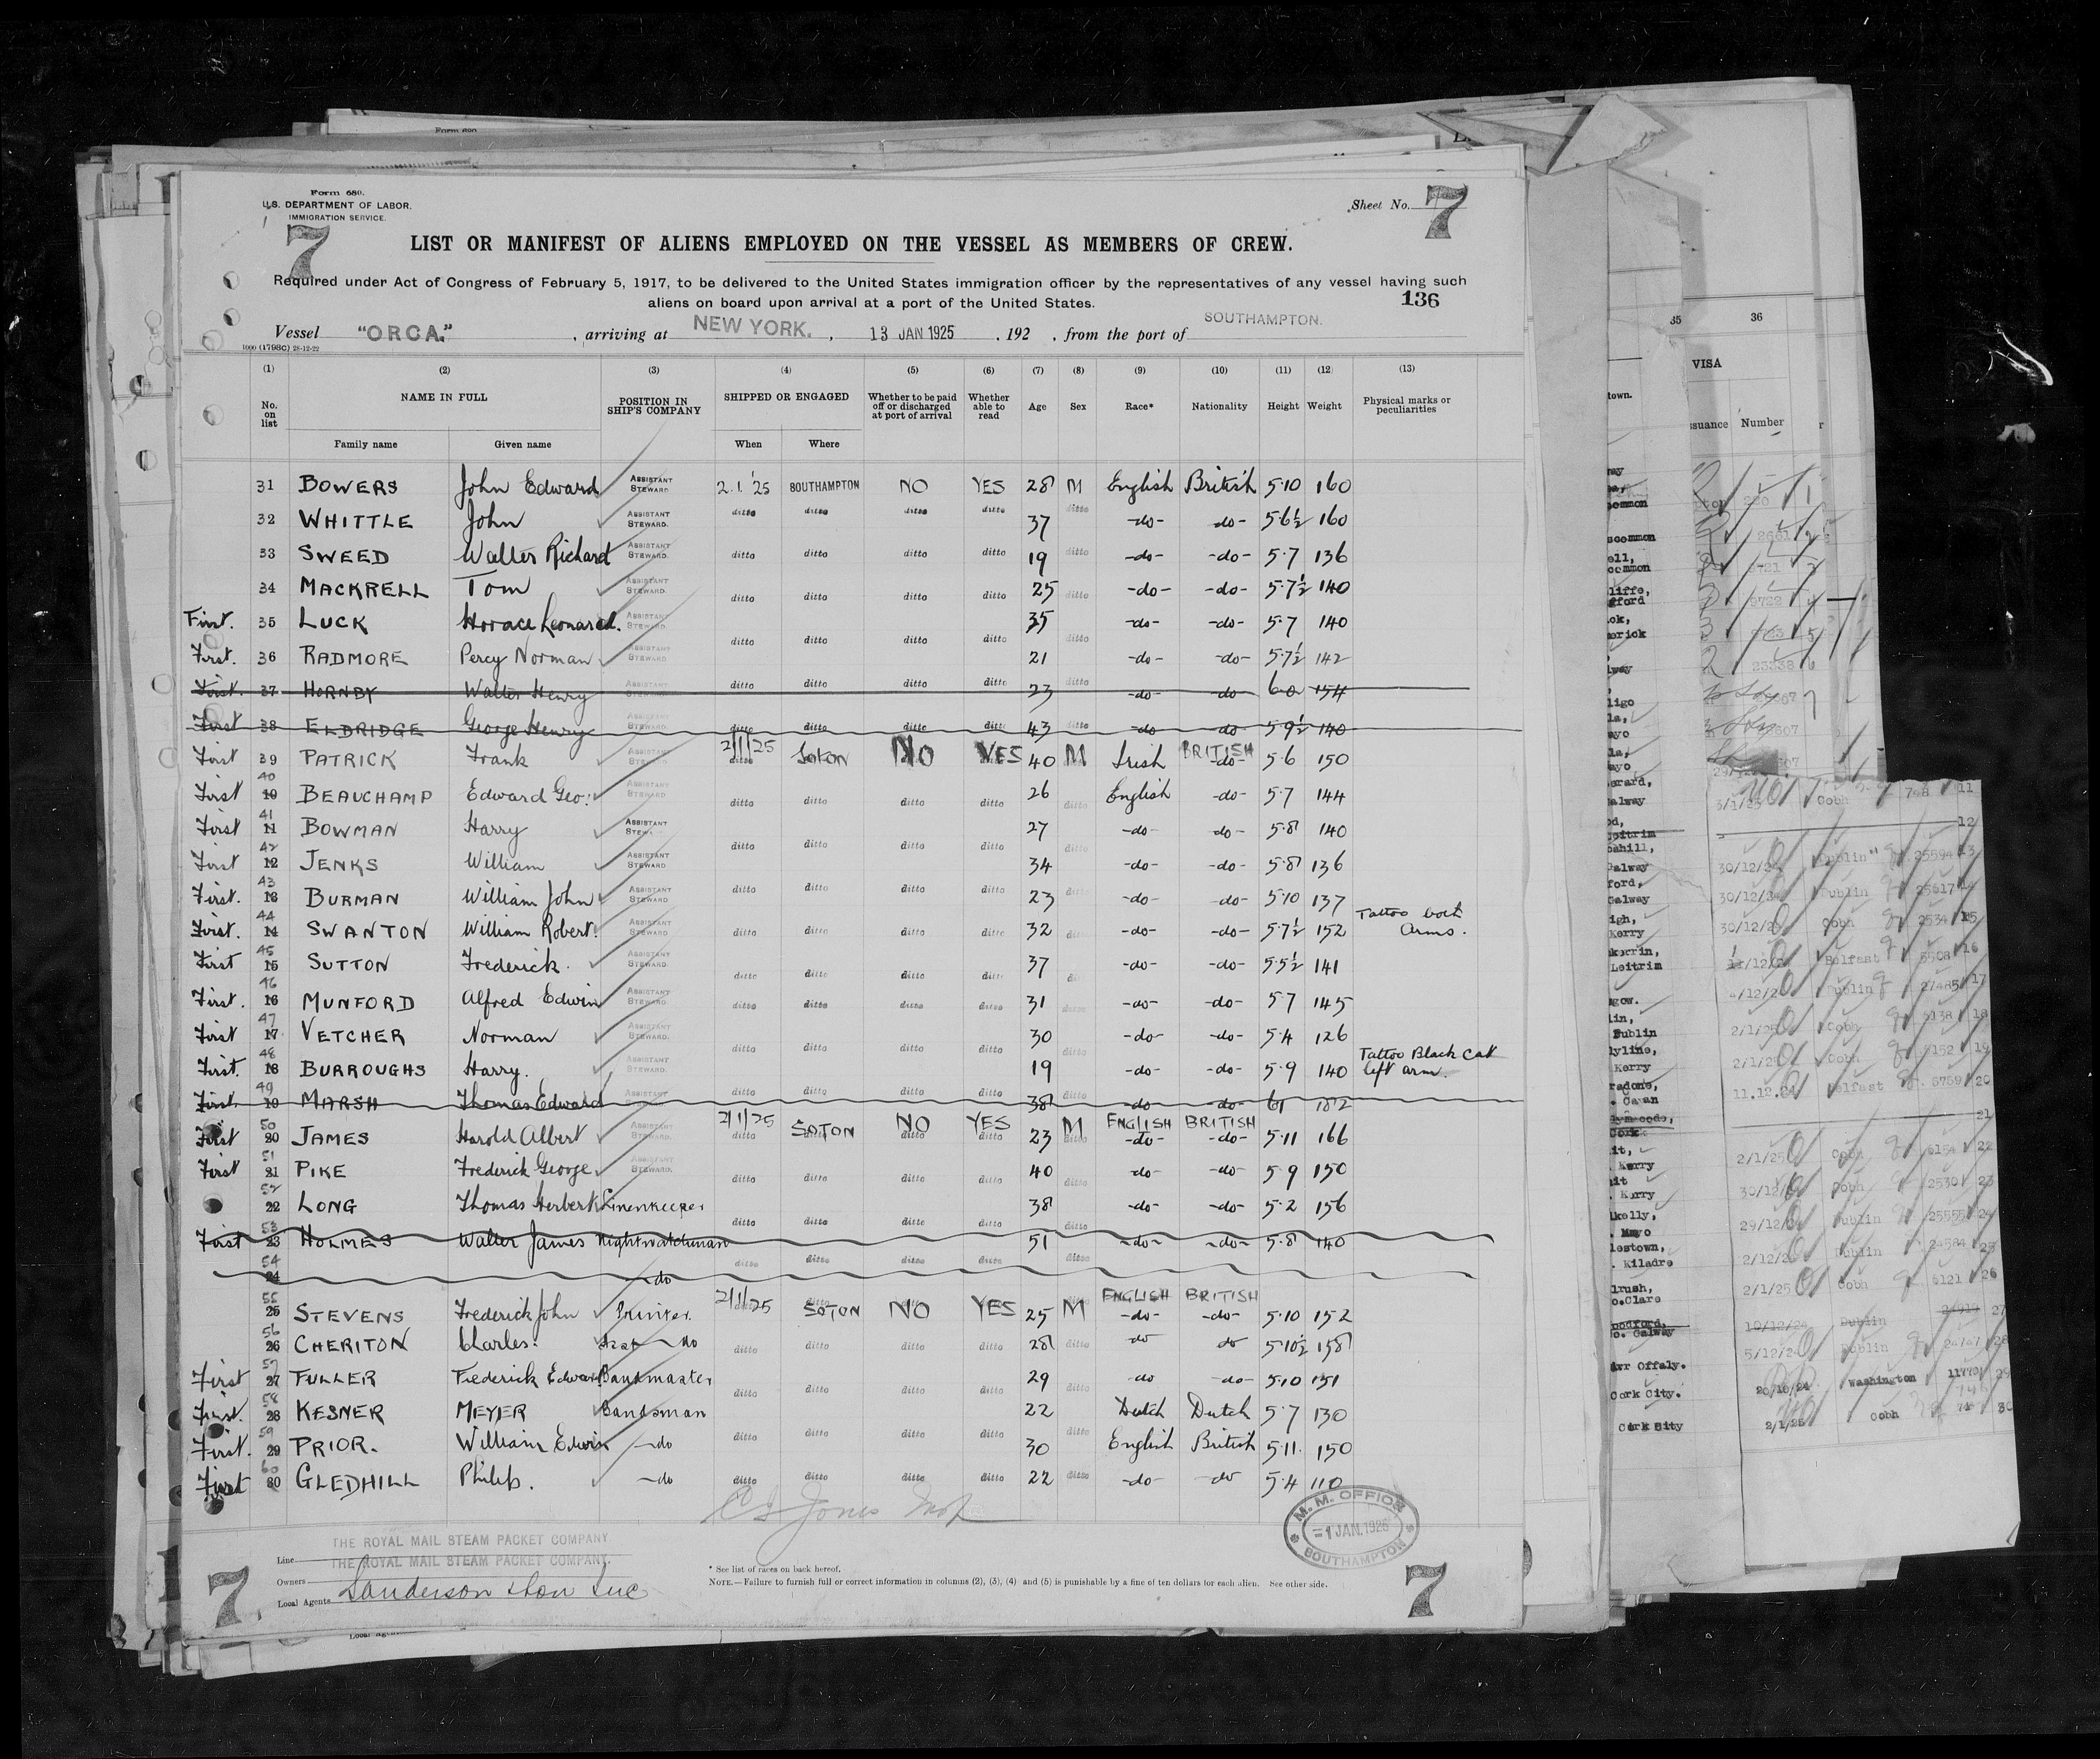 Form 680.
U.S. DEPARTMENT OF LABOR.
IMMIGRATION SERVICE.
Sheet No. 7
7
LIST OR MANIFEST OF ALIENS EMPLOYED ON THE VESSEL AS MEMBERS OF CREW.
Required under Act of Congress of February 5, 1917, to be delivered to the United States immigration officer by the representatives of any vessel having such
aliens on board upon arrival at a port of the United States.
136
Vessel "ORCA." , arriving at NEW YORK. , 13 JAN 1925 , 192 , from the port of SOUTHAMPTON.
1000 (1798C) 28-12-22
(1) (2) (3) (4) (5) (6) (7) (8) (9) (10) (11) (12) (13)
No. on list NAME IN FULL POSITION IN SHIP'S COMPANY SHIPPED OR ENGAGED Whether to be paid off or discharged at port of arrival Whether able to read Age Sex Race* Nationality Height Weight Physical marks or peculiarities
Family name Given name When Where
31 BOWERS John Edward ASSISTANT STEWARD 2.1.'25 SOUTHAMPTON NO YES 28 M English British 5·10 160
32 WHITTLE John ASSISTANT STEWARD. ditto ditto ditto ditto 37 ditto -do- -do- 5·6½ 160
33 SWEED Walter Richard ASSISTANT STEWARD. ditto ditto ditto ditto 19 ditto -do- -do- 5·7 136
34 MACKRELL Tom ASSISTANT STEWARD. ditto ditto ditto ditto 25 ditto -do- -do- 5·7½ 140
First. 35 LUCK Horace Leonard. ASSISTANT STEWARD. ditto ditto ditto ditto 35 ditto -do- -do- 5·7 140
First. 36 RADMORE Percy Norman ASSISTANT STEWARD 21 -do- -do- 5·7½ 142
First. 37 HORNBY Walter Henry ASSISTANT STEWARD ditto ditto ditto ditto 23 ditto -do- -do 6·0 154
First 38 ELDRIDGE George Henry ASSISTANT STEWARD ditto ditto ditto ditto 43 ditto -do -do- 5·9½ 140
First 39 PATRICK Frank ASSISTANT 2/1/25 ditto Soton NO YES 40 M Irish BRITISH -do- 5·6 150
First 40 10 BEAUCHAMP Edward Geo: ASSISTANT STEWARD ditto ditto ditto ditto 26 ditto English -do- 5·7 144
First 41 11 BOWMAN Harry ASSISTANT STEW 27 -do- -do- 5·8 140
First 42 12 JENKS William ASSISTANT STEWARD ditto ditto ditto ditto 34 ditto -do- -do- 5·8 136
First. 43 13 BURMAN William John ASSISTANT STEWARD ditto ditto ditto ditto 23 ditto -do- -do- 5·10 137
First. 44 14 SWANTON William Robert. ASSISTANT STEWARD ditto ditto ditto ditto 32 -do- -do- 5·7½ 152 Tattoo both Arms.
First 45 15 SUTTON Frederick. ASSISTANT STEWARD ditto ditto ditto ditto 37 -do- -do- 5·5½ 141
First. 46 16 MUNFORD Alfred Edwin ASSISTANT STEWARD ditto ditto ditto ditto 31 ditto -do- -do- 5·7 145
First 47 17 VETCHER Norman ASSISTANT STEWARD. ditto ditto ditto ditto 30 ditto -do- -do- 5·4 126
First. 48 18 BURROUGHS Harry. ASSISTANT STEWARD. 19 -do- -do- 5·9 140 Tattoo Black Cat left arm.
First 49 19 MARSH Thomas Edward ASSISTANT ditto ditto ditto ditto 38 ditto -do -do- 6·1 182
First 50 20 JAMES Harold Albert ASSISTANT STEWARD 2/1/25 ditto SOTON NO YES ditto ditto 23 M ditto ENGLISH -do- BRITISH -do- 5·11 166
First 51 21 PIKE Frederick George ASSISTANT STEWARD. ditto ditto ditto ditto 40 ditto -do- -do- 5·9 150
52 22 LONG Thomas Herbert Linenkeeper ditto ditto ditto ditto 38 ditto -do- -do- 5·2 156
First 53 23 HOLMES Walter James Nightwatchman 51 -do- -do- 5·8 140
54 24 -do ditto ditto ditto ditto ditto
55 25 STEVENS Frederick John Printer. 2/1/25 SOTON NO YES 25 M ENGLISH -do- BRITISH -do- 5·10 152
56 26 CHERITON Charles. Asst -do ditto ditto ditto ditto 28 ditto do do 5·10½ 158
First 57 27 FULLER Frederick Edward Bandmaster ditto ditto ditto ditto 29 ditto -do -do- 5·10 151
First. 58 28 KESNER MEYER Bandsman 22 Dutch Dutch 5·7 130
First. 59 29 PRIOR. William Edwin -do ditto ditto ditto ditto 30 ditto English British 5·11. 150
First 60 30 GLEDHILL Philip. -do ditto ditto ditto ditto 22 ditto -do- -do 5·4 110
C S Jones
M. M. OFFICE
1 JAN. 1925
SOUTHAMPTON
THE ROYAL MAIL STEAM PACKET COMPANY
Line THE ROYAL MAIL STEAM PACKET COMPANY.
Owners
Local Agents Sanderson & Son Inc
* See list of races on back hereof.
NOTE.—Failure to furnish full or correct information in columns (2), (3), (4) and (5) is punishable by a fine of ten dollars for each alien. See other side.
7
7
35 36
VISA
town.
ssuance Number
Galway
Kerry
Leitrim
Dublin
Kerry
Cork
Kerry
Mayo
lestown,
Kiladre
lrush,
o.Clare
Galway
Offaly.
Cork City.
Cork City
3/1/25 Cobh 768 11
12
30/12/24 Dublin 25594 13
30/12/24 Dublin 25617 14
30/12/24 Cobh 2534 15
Belfast 5508 16
Dublin 27485 17
2/1/25 Cobh 6138 18
2/1/25 Cobh 6152 19
11.12.24 Belfast 5759 20
21
2/1/25 Cobh 6154 22
30/12/24 Cobh 2530 23
29/12/24 Dublin 25555 24
2/12/24 Dublin 24584 25
2/1/25 Cobh 6121 26
10/12/24 Dublin 27
5/12/24 Dublin 24747 28
20/10/24 Washington 11770 29
2/1/25 Cobh 30